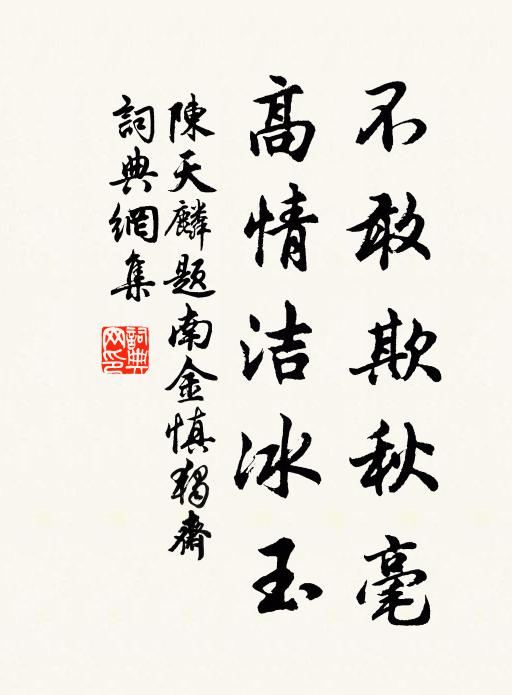 不敢欺秋毫
高情洁冰玉
陳天麟题南金慎独齋
詞典網集
詞典网印